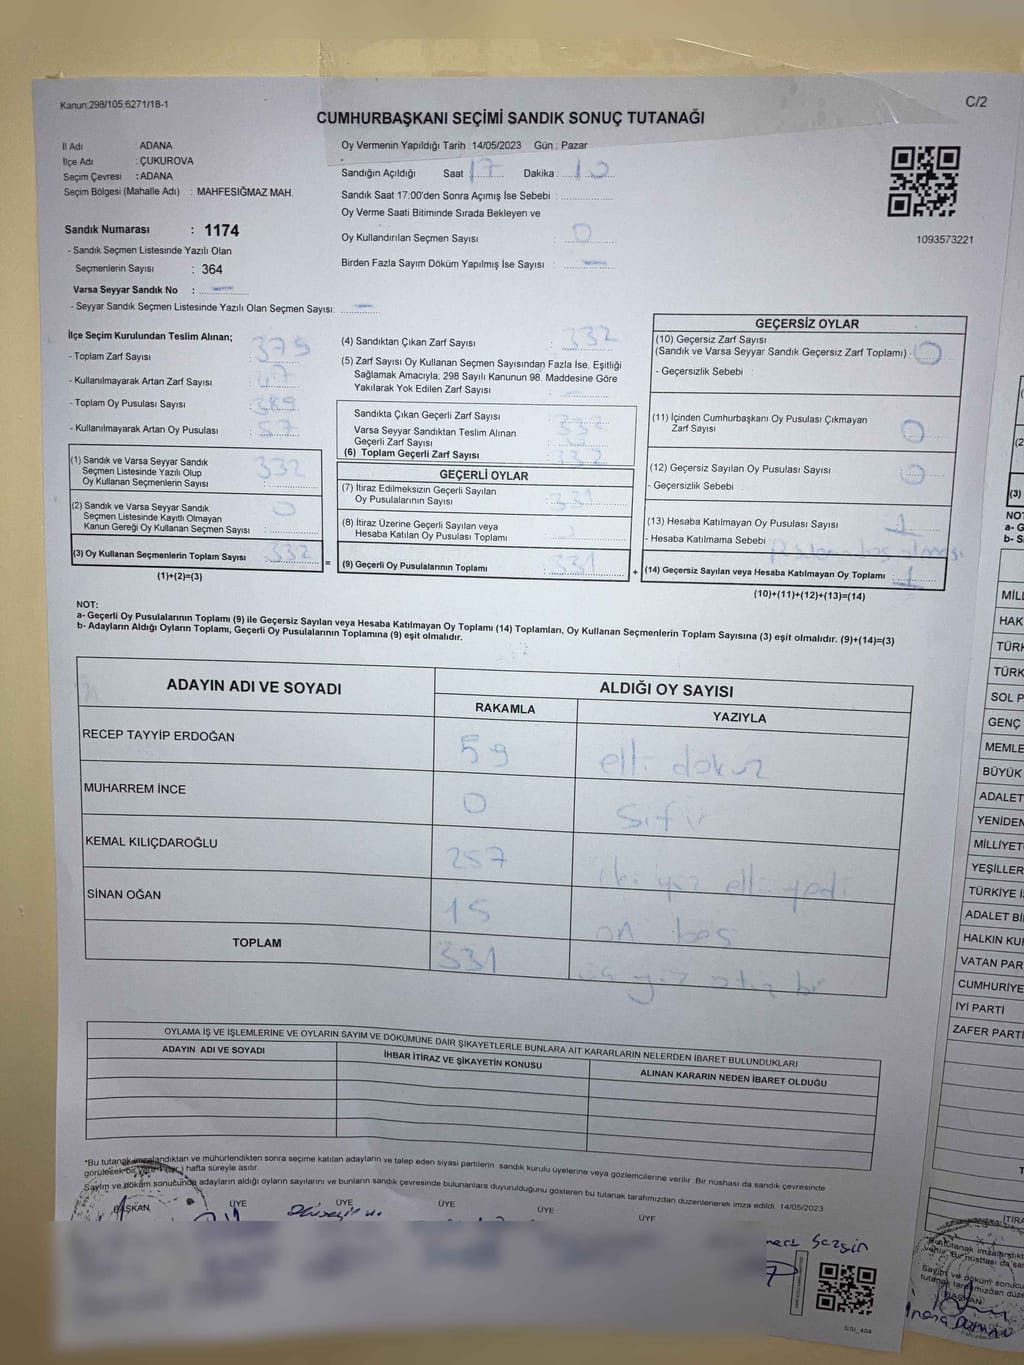 Kanun;298/105;6271/18-1
C/2
CUMHURBAŞKANI SEÇİMİ SANDIK SONUÇ TUTANAĞI
İl Adı : ADANA
İlçe Adı : ÇUKUROVA
Seçim Çevresi : ADANA
Seçim Bölgesi (Mahalle Adı) : MAHFESIĞMAZ MAH.
Sandık Numarası : 1174
- Sandık Seçmen Listesinde Yazılı Olan
Seçmenlerin Sayısı : 364
Varsa Seyyar Sandık No : —
- Seyyar Sandık Seçmen Listesinde Yazılı Olan Seçmen Sayısı: —
Oy Vermenin Yapıldığı Tarih : 14/05/2023 Gün : Pazar
Sandığın Açıldığı Saat : 17 Dakika : 10
Sandık Saat 17:00'den Sonra Açımış İse Sebebi :
Oy Verme Saati Bitiminde Sırada Bekleyen ve
Oy Kullandırılan Seçmen Sayısı : 0
Birden Fazla Sayım Döküm Yapılmış İse Sayısı : —
1093573221
İlçe Seçim Kurulundan Teslim Alınan;
- Toplam Zarf Sayısı : 379
- Kullanılmayarak Artan Zarf Sayısı : 47
- Toplam Oy Pusulası Sayısı : 389
- Kullanılmayarak Artan Oy Pusulası : 57
(1) Sandık ve Varsa Seyyar Sandık
Seçmen Listesinde Yazılı Olup
Oy Kullanan Seçmenlerin Sayısı : 332
(2) Sandık ve Varsa Seyyar Sandık
Seçmen Listesinde Kayıtlı Olmayan
Kanun Gereği Oy Kullanan Seçmen Sayısı : 0
(3) Oy Kullanan Seçmenlerin Toplam Sayısı : 332
(1)+(2)=(3)
(4) Sandıktan Çıkan Zarf Sayısı : 332
(5) Zarf Sayısı Oy Kullanan Seçmen Sayısından Fazla İse, Eşitliği
Sağlamak Amacıyla, 298 Sayılı Kanunun 98. Maddesine Göre
Yakılarak Yok Edilen Zarf Sayısı : —
Sandıkta Çıkan Geçerli Zarf Sayısı : 332
Varsa Seyyar Sandıktan Teslim Alınan
Geçerli Zarf Sayısı :
(6) Toplam Geçerli Zarf Sayısı : 332
GEÇERLİ OYLAR
(7) İtiraz Edilmeksizin Geçerli Sayılan
Oy Pusulalarının Sayısı : 331
(8) İtiraz Üzerine Geçerli Sayılan veya
Hesaba Katılan Oy Pusulası Toplamı :
(9) Geçerli Oy Pusulalarının Toplamı : 331
GEÇERSİZ OYLAR
(10) Geçersiz Zarf Sayısı
(Sandık ve Varsa Seyyar Sandık Geçersiz Zarf Toplamı) : 0
- Geçersizlik Sebebi :
(11) İçinden Cumhurbaşkanı Oy Pusulası Çıkmayan
Zarf Sayısı : 0
(12) Geçersiz Sayılan Oy Pusulası Sayısı : 0
- Geçersizlik Sebebi :
(13) Hesaba Katılmayan Oy Pusulası Sayısı : 1
- Hesaba Katılmama Sebebi : boş olması
(14) Geçersiz Sayılan veya Hesaba Katılmayan Oy Toplamı : 1
(10)+(11)+(12)+(13)=(14)
NOT:
a- Geçerli Oy Pusulalarının Toplamı (9) ile Geçersiz Sayılan veya Hesaba Katılmayan Oy Toplamı (14) Toplamları, Oy Kullanan Seçmenlerin Toplam Sayısına (3) eşit olmalıdır. (9)+(14)=(3)
b- Adayların Aldığı Oyların Toplamı, Geçerli Oy Pusulalarının Toplamına (9) eşit olmalıdır.
ADAYIN ADI VE SOYADI
ALDIĞI OY SAYISI
RAKAMLA YAZIYLA
RECEP TAYYİP ERDOĞAN 59 elli dokuz
MUHARREM İNCE 0 Sıfır
KEMAL KILIÇDAROĞLU 257 iki yüz elli yedi
SİNAN OĞAN 15 on beş
TOPLAM 331 üç yüz otuz bir
OYLAMA İŞ VE İŞLEMLERİNE VE OYLARIN SAYIM VE DÖKÜMÜNE DAİR ŞİKAYETLERLE BUNLARA AİT KARARLARIN NELERDEN İBARET BULUNDUKLARI
ADAYIN ADI VE SOYADI İHBAR İTİRAZ VE ŞİKAYETİN KONUSU ALINAN KARARIN NEDEN İBARET OLDUĞU
*Bu tutanak imzalandıktan ve mühürlendikten sonra seçime katılan adayların ve talep eden siyasi partilerin sandık kurulu üyelerine veya gözlemcilerine verilir. Bir nüshası da sandık çevresinde
görülecek bir yere 1 (bir) hafta süreyle asılır.
Sayım ve döküm sonucunda adayların aldığı oyların sayılarını ve bunların sandık çevresinde bulunanlara duyurulduğunu gösteren bu tutanak tarafımızdan düzenlenerek imza edildi. 14/05/2023
BAŞKAN ÜYE ÜYE ÜYE ÜYE ÜYE
Sezgin
(3)
NOT
a- G
b- S
MİLL
HAK
TÜRK
TÜRK
SOL P
GENÇ
MEMLE
BÜYÜK
ADALET
YENİDEN
MİLLİYET
YEŞİLLER
TÜRKİYE İ
ADALET Bİ
HALKIN KU
VATAN PAR
CUMHURİYE
İYİ PARTİ
ZAFER PARTİ
İTİRA
BAŞKAN